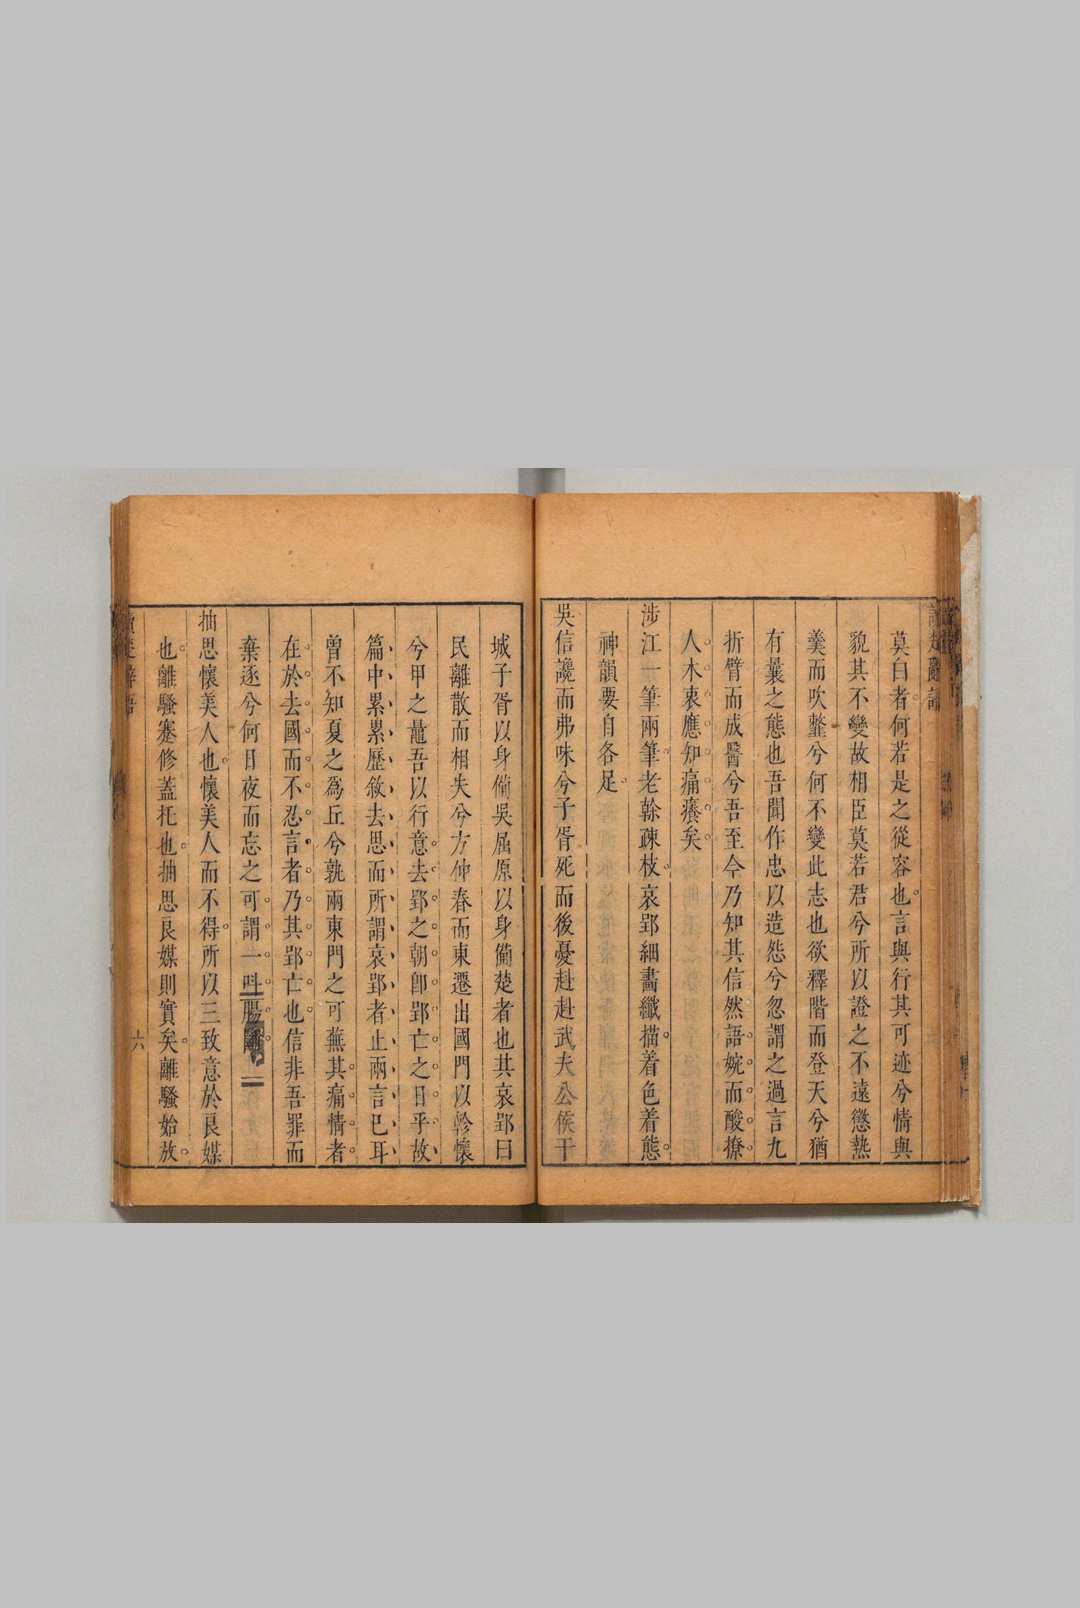 莫白者何若是之從容也言與行其可迹兮情與
貌其不變故相臣莫若君兮所以證之不遠懲熱
羹而吹韲兮何不變此志也欲釋階而登天兮猶
有曩之態也吾聞作忠以造怨兮忽謂之過言九
折臂而成醫兮吾至今乃知其信然語婉而酸撩
人木衷應知痛癢矣
涉江一筆兩筆老榦疎枝哀郢細畵纖描着色着態
神韻要自各足
吳信讒而弗味兮子胥死而後憂赴赴武夫公侯干
城子胥以身偹吳屈原以身偹楚者也其哀郢曰
民離散而相失兮方仲春而東遷出國門以軫懷
兮甲之鼂吾以行意去郢之朝卽郢亡之日乎故
篇中累累歷敘去思而所謂哀郢者止兩言已耳
曾不知夏之爲丘兮孰兩東門之可蕪其痛情者
在於去國而不忍言者乃其郢亡也信非吾罪而
棄逐兮何日夜而忘之可謂一呌腸
抽思懷美人也懷美人而不得所以三致意於良媒
也離騷蹇修蓋托也抽思良媒則實矣離騷始放
六